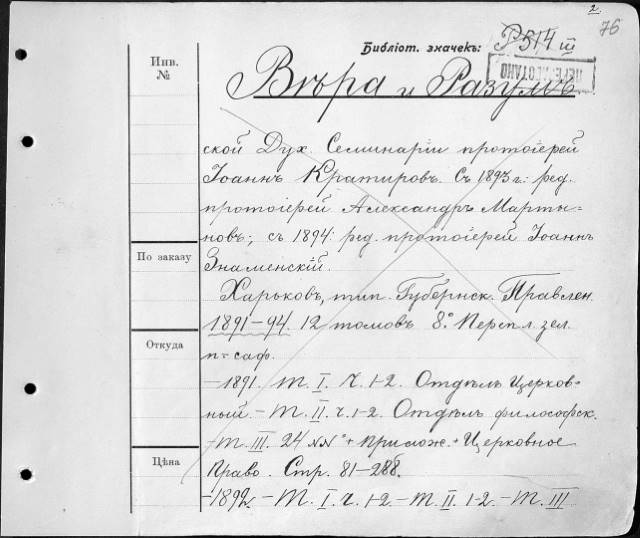 2.
76
Инв.
№
Библіот. значекъ: P514 III
ПЕРЕРАБОТАНО
Вѣра и Разумъ
ской Дух. Семинаріи протоіерей
Іоаннъ Кратировъ. Съ 1893 г: ред.
протоіерей Александръ Марты=
новъ; съ 1894: ред. протоіерей Іоаннъ
По заказу
Знаменскій.
Харьковъ, тип. Губернск. Правлен.
1891–94. 12 томовъ 8.° Перепл. зел.
Откуда
п= саф.
–1891. Т. I. Ч. 1-2. Отдѣлъ Церков-
ный – Т. II. ч. 1-2. Отдѣлъ философск.
– Т. III. 24 №№ + прилож. + Церковное
Цѣна
право. Стр. 81–288.
–1892. – Т. I. ч. 1-2. – Т. II. 1-2. – Т. III